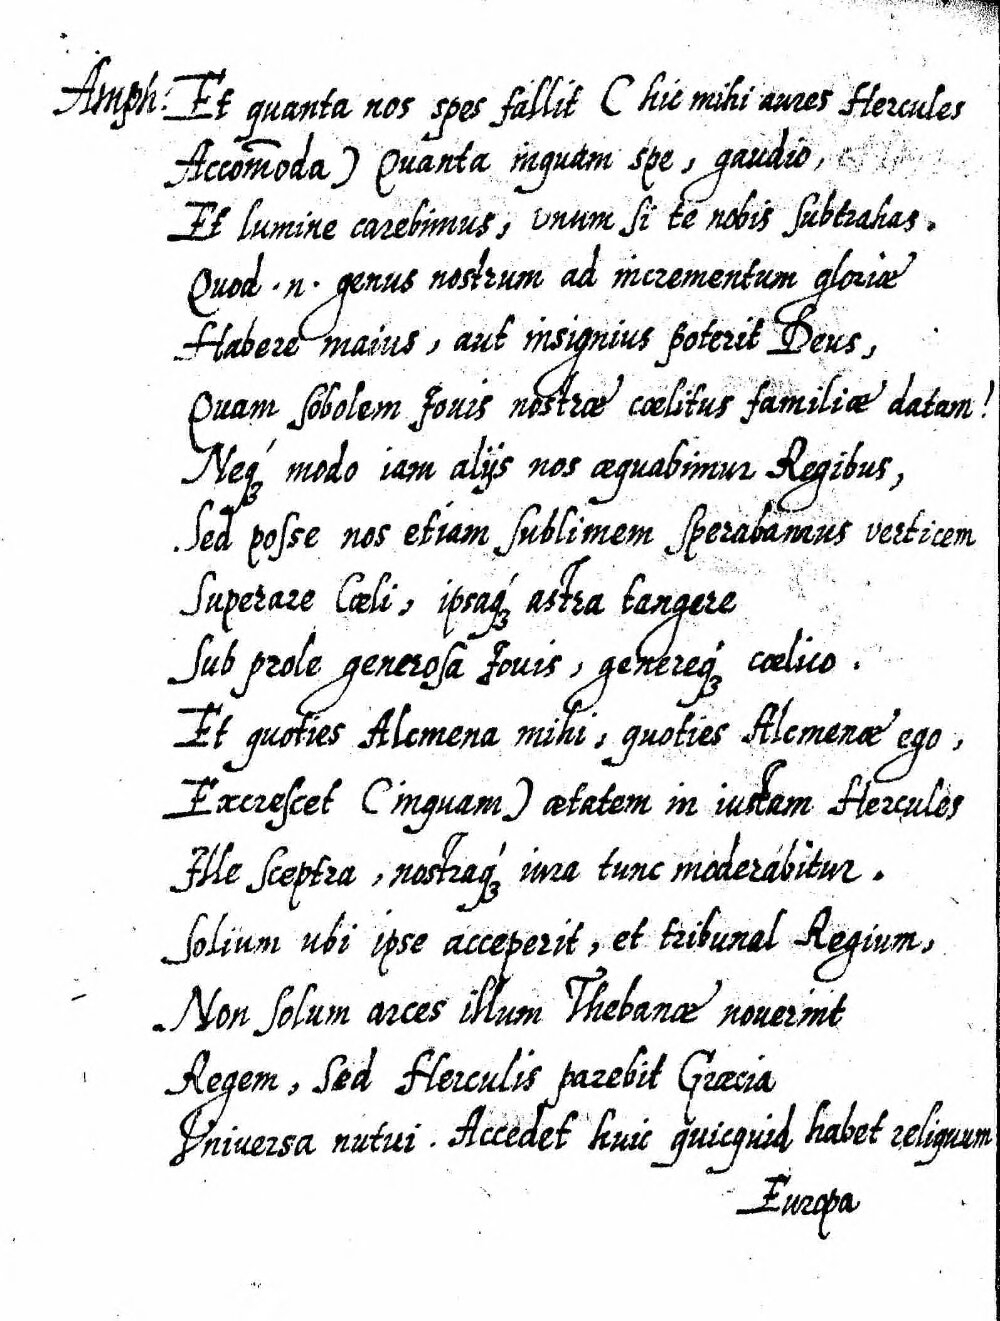 Amph: Et quanta nos spes fallit (hic mihi aures Hercules
Accom̄oda) Quanta inquam spe, gaudio,
Et lumine carebimus, vnum si te nobis subtrahas.
Quod .n. genus nostrum ad incrementum gloriæ
Habere maius, aut insignius poterit Deus,
Quam sobolem Jouis nostræ cœlitus familiæ datam!
Neq́ꝫ modo iam alijs nos æquabimur Regibus,
Sed posse nos etiam sublimem sperabamus verticem
Superare Cœli, ipsaq́ꝫ astra tangere
Sub prole generosa Jouis, genereq́ꝫ cœlico.
Et quoties Alcmena mihi, quoties Alcmenæ ego,
Excrescet (inquam) ætatem in iustam Hercules
Ille sceptra, nostraq́ꝫ iura tunc moderabitur.
Solium ubi ipse acceperit, et tribunal Regium,
Non solum arces illum Thebanæ nouerint
Regem, sed Herculis parebit Græcia
Vniuersa nutui. Accedet huic quicquid habet reliquum
Europa